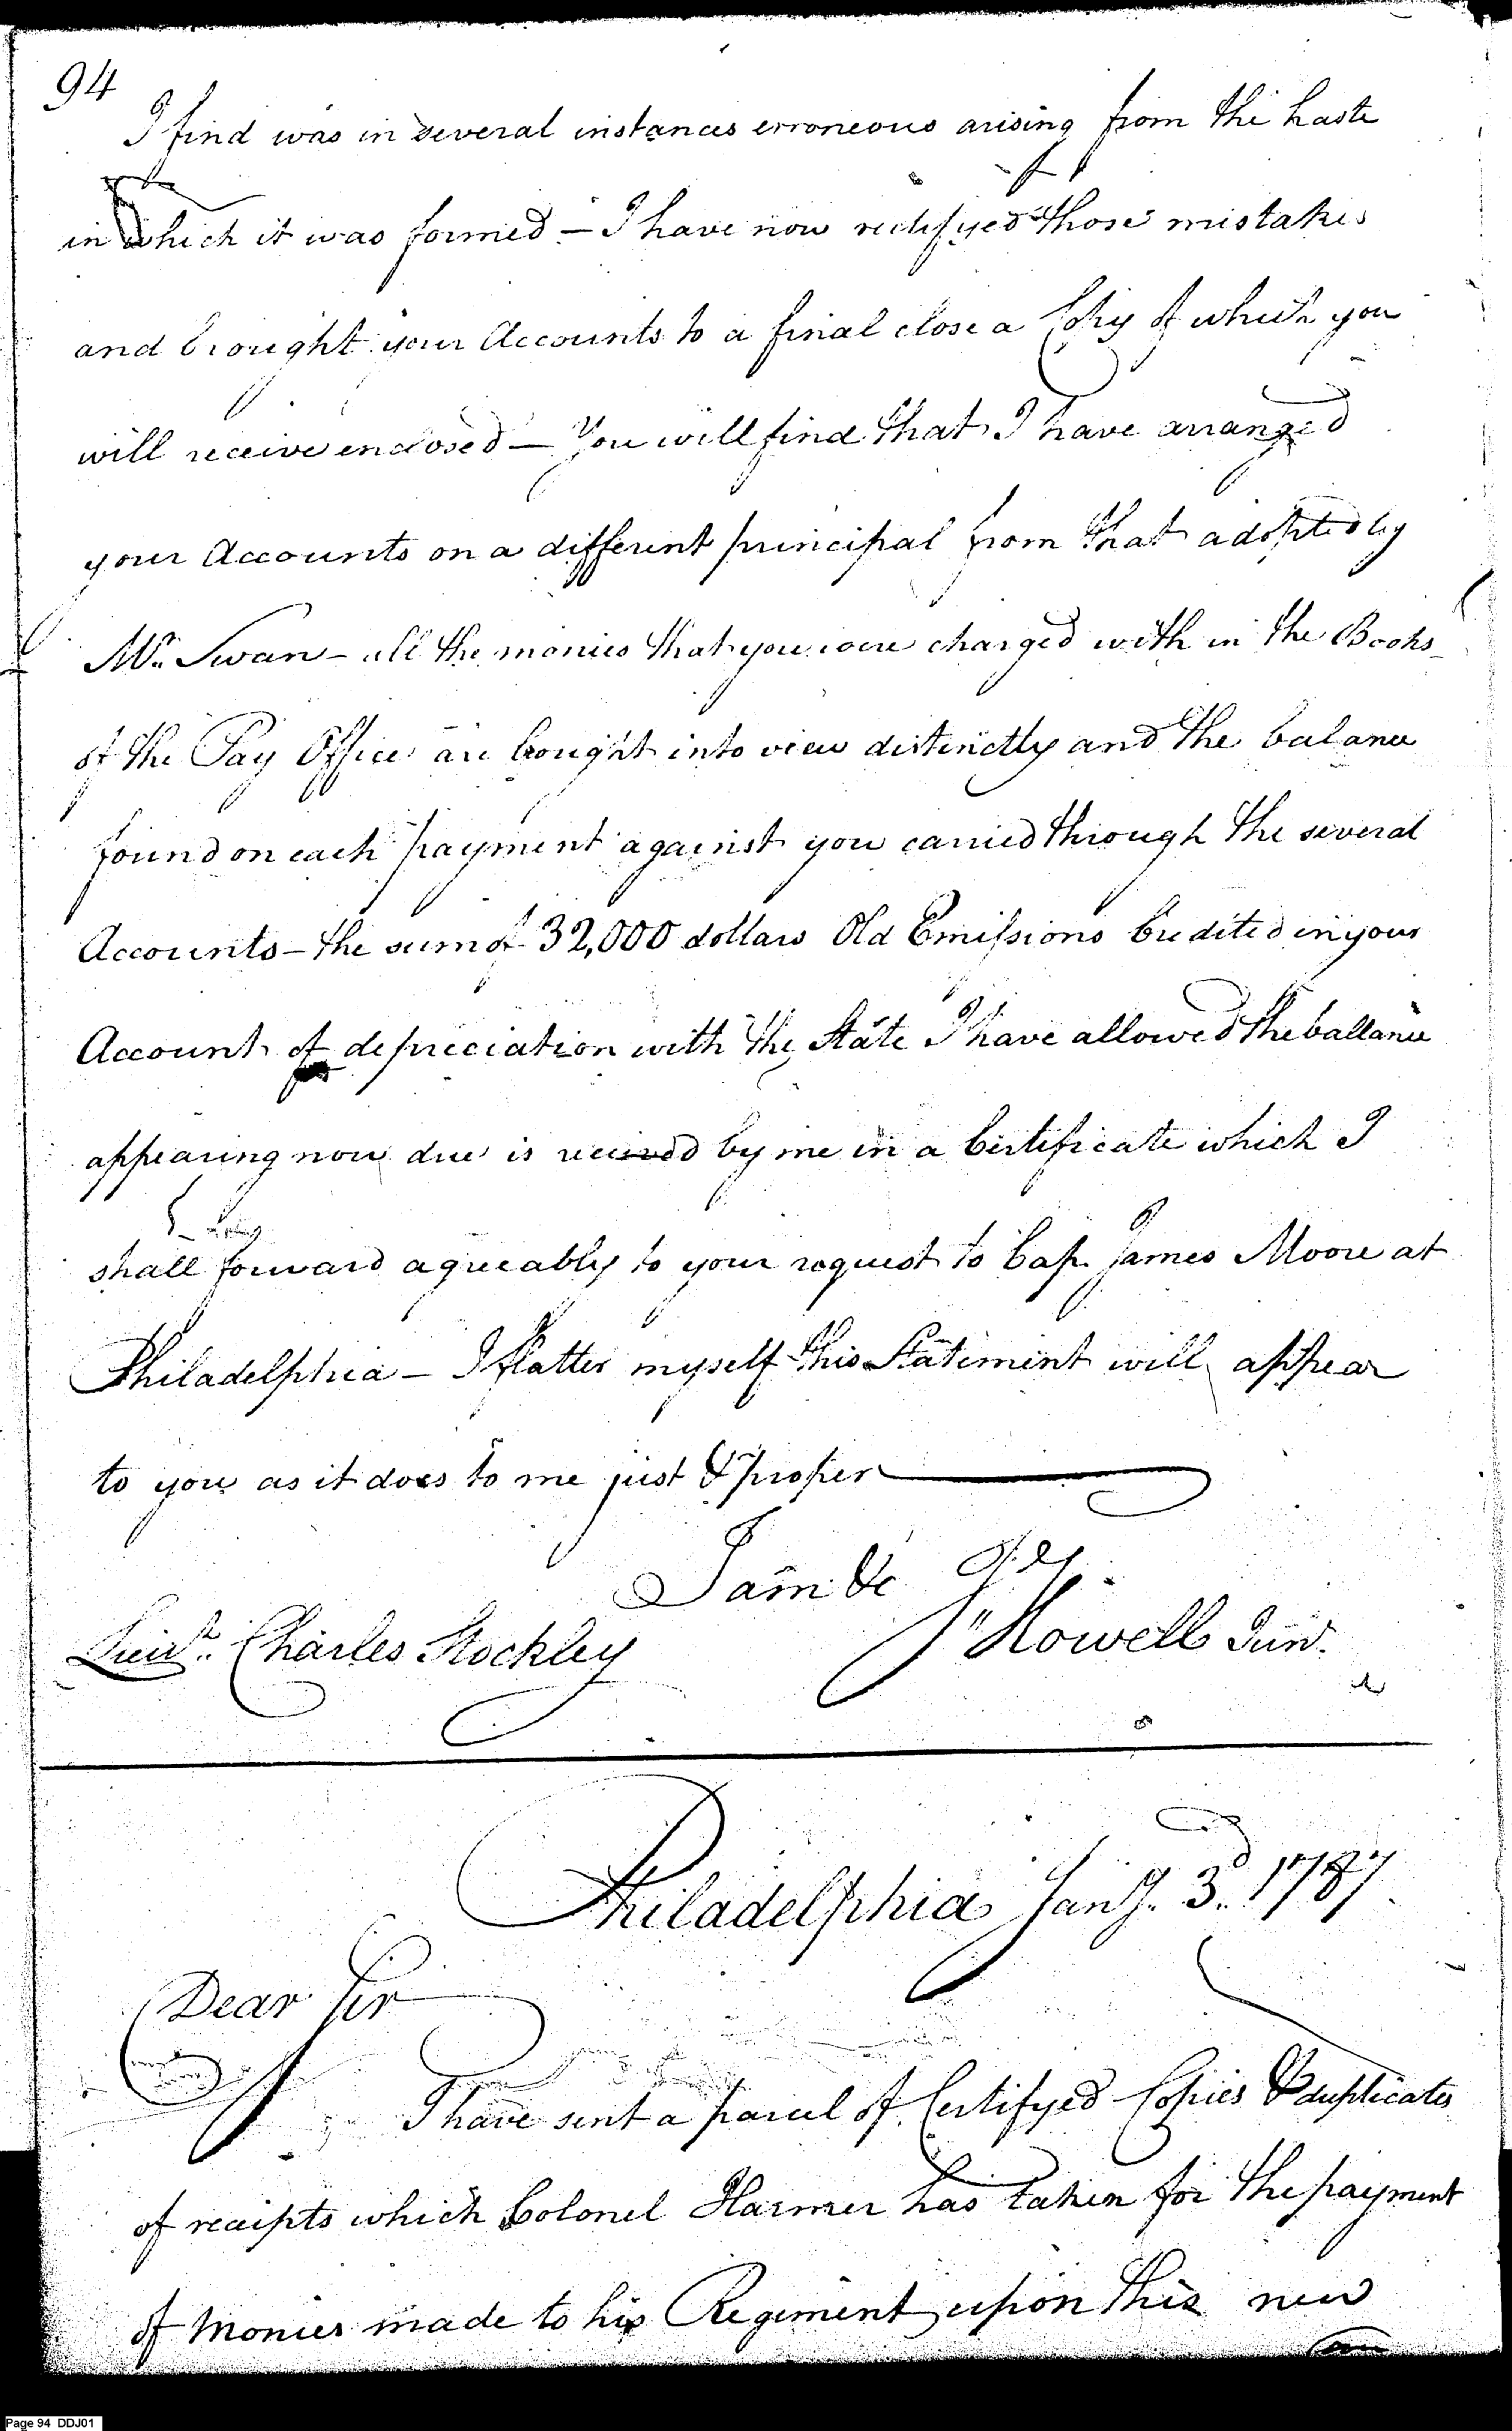 94
I find was in several instances erroneous arising from the haste
in which it was formed – I have now rectifyed those mistakes
and brought your Accounts to a final close a Copy of which you
will receive enclosed – You will find that I have arranged
your Accounts on a different principal from that adopted by
Mr. Swan – all the monies that you were charged with in the Books
of the Pay Office are brought into view distinctly and the balance
found on each payment against you carried through the several
Accounts – the sum of 32,000 dollars Old Emissions Credited in your
Account of depreciation with the State I have allowed the ballance
appearing now due is received by me in a Certificate which I
shall forward agreeably to your request to Cap. James Moore at
Philadelphia – I flatter myself this Statement will appear
to you as it does to me just & proper
I am &c
J Howell Junr.
Lieut. Charles Stockley
Philadelphia Jany. 3d. 1787
Dear Sir
I have sent a parcel of Certifyed Copies & duplicates
of receipts which Colonel Harmer has taken for the payment
of Monies made to his Regiment upon this new